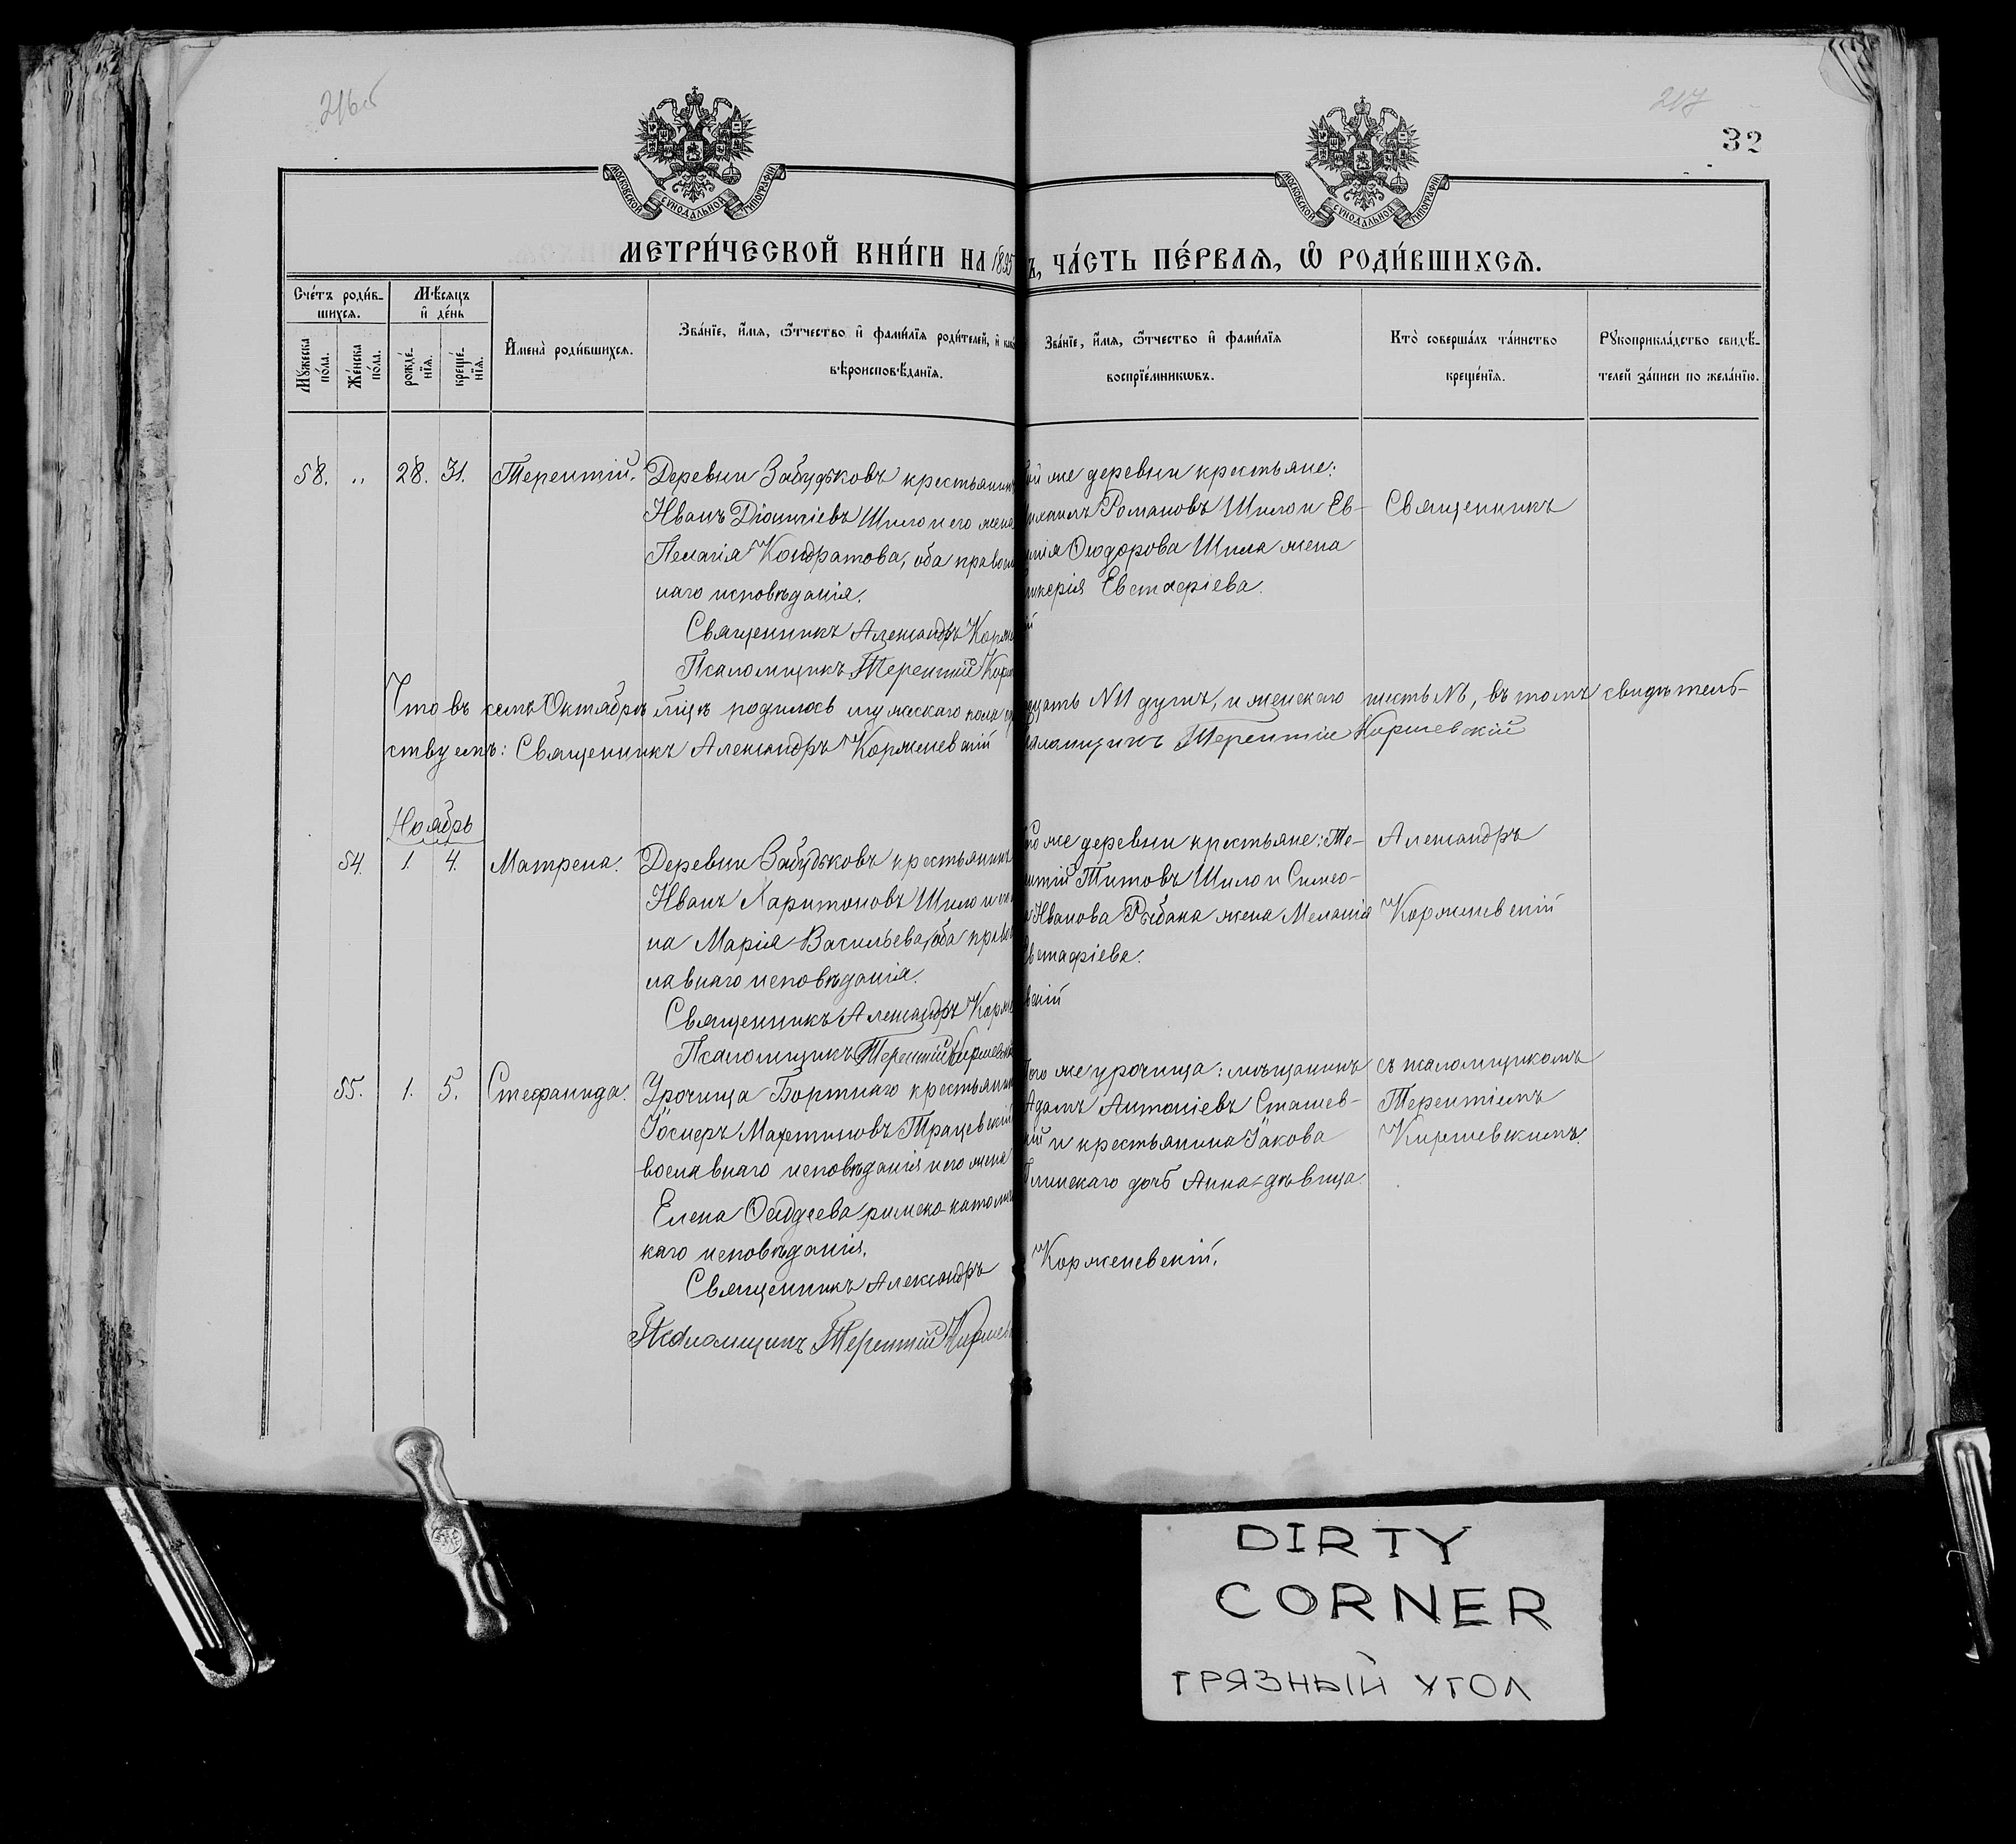 216об
217
32
МОСКОВСКОЙ СѴНОДАЛЬНОЙ ТИПОГРАФІИ
МОСКОВСКОЙ СѴНОДАЛЬНОЙ ТИПОГРАФІИ
МЕТРИ́ЧЕСКОЙ КНИ́ГИ НА 1895 Ъ, ЧА́СТЬ ПЕ́РВАѦ, Ѡ҆ РОДИ́ВШИХСѦ.
Сче́тъ роди́в-
шихсѧ.
Мѣ́сѧцъ
и҆ де́нь
Мꙋжеска
по́ла.
Же́нска
по́ла.
рожде́-
нїѧ.
креще́-
нїѧ.
И҆мена̀ роди́вшихсѧ.
Зва́нїе, и҆́мѧ, ѻ҆́тчество и҆ фами́лїѧ роди́телей, и҆ како
вѣроисповѣ́данїѧ.
Зва́нїе, и҆́мѧ, ѻ҆́тчество и҆ фами́лїѧ
воспрїе́мникѡвъ.
Кто̀ соверша́лъ та́инство
креще́нїѧ.
Рꙋкоприкла́дство свидѣ́-
телей за́писи по жела́нїю.
58. „ 28. 31. Терентій. Деревни Забудьковъ крестьянинъ
Иванъ Діонисіевъ Шило и его жена
Пелагія Кондратова, оба правосл
наго исповѣданія.
Священникъ Александръ Корже
Псаломщикъ Терентій Кирш
ой же деревни крестьяне:
ихаилъ Романовъ Шило и Ев-
Ѳеодорова Шила жена
икерія Евстафіева.
й
Священникъ
Что въ семъ Октябрѣ м-цѣ родилось мужескаго пола дцать №11 душъ, и женскаго шесть №6, въ томъ свидѣтель-
ствуемъ: Священникъ Александръ Корженевскій саломщикъ Терентій Киршевскій
Ноябрь
54. 1. 4. Матрена. Деревни Забудьковъ крестьянинъ
Иванъ Харитоновъ Шило и его
на Марія Васильева, оба право
славнаго исповѣданія.
Священникъ Александръ Корже
Псаломщикъ Терентій Киршевскій
же деревни крестьяне: Те-
ентій Титовъ Шило и Симео-
Иванова Рыбака жена Меланія
встафіева.
вскій
Александръ
Корженевскій
55. 1. 5. Стефанида. Урочища Бортнаго крестьянинъ
Іосифъ Мартиновъ Трацевскій
вославнаго исповѣданія и его жена
Елена Ѳаддеева римско-католич
каго исповѣданія.
Священникъ Александръ
Псаломщикъ Терентій Киршев
того же урочища: мѣщанинъ
Адамъ Антоніевъ Сташев-
кій и крестьянина Іакова
Глинскаго дочь Анна-дѣвица.
Корженевскій.
съ псаломщикомъ
Терентіемъ
Киршевскимъ.
DIRTY
CORNER
ГРЯЗНЫЙ УГОЛ